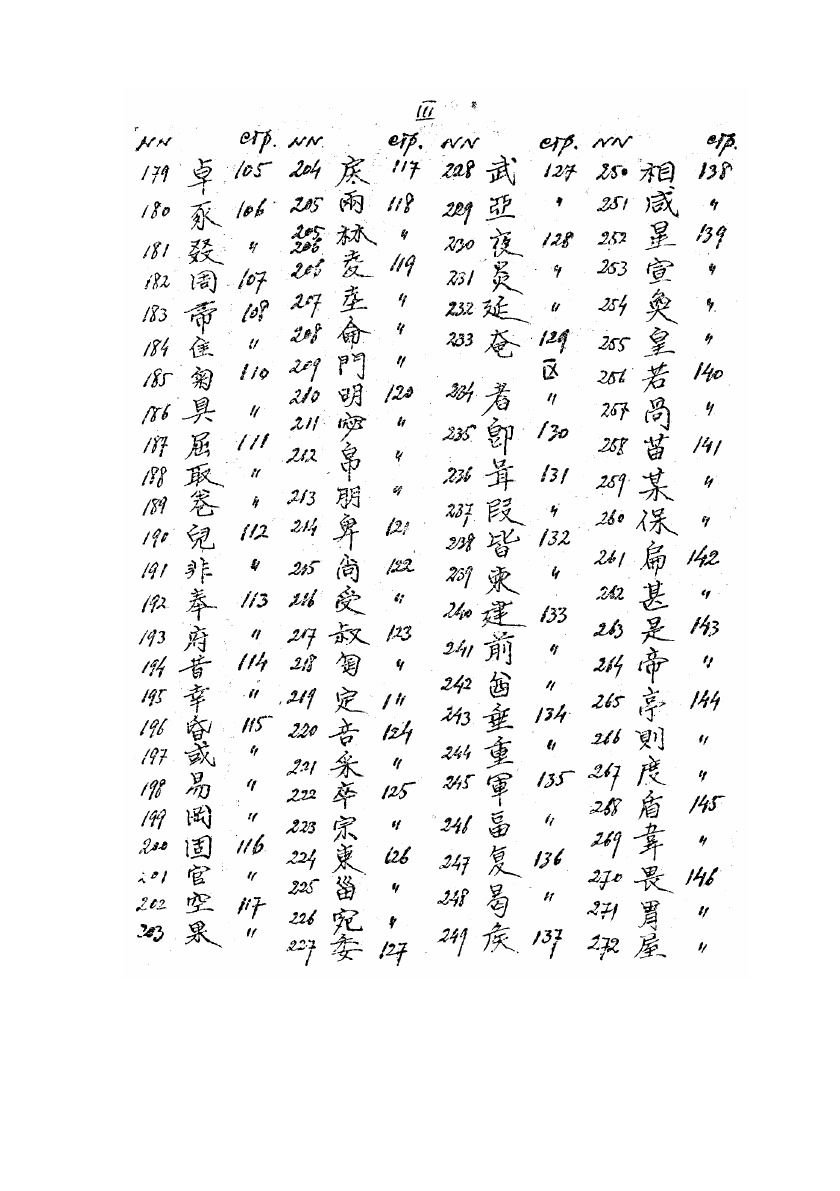 III
NN стр. NN стр. NN стр. NN стр.
179 卓 105
180 豖 106
181 叕 "
182 周 107
183 帚 108
184 隹 "
185 匊 110
186 具 "
187 屈 111
188 取 "
189 卷 "
190 兒 112
191 非 "
192 奉 113
193 府 "
194 昔 114
195 幸 "
196 昏 115
197 或 "
198 易 "
199 岡 "
200 固 116
201 官 "
202 空 117
203 果 "
204 戾 117
205 兩 118
205 206 林 "
206 夌 119
207 坴 "
208 侖 "
209 門 "
210 明 120
211 宓 "
212 帛 "
213 朋 "
214 卑 121
215 尚 122
216 受 "
217 叔 123
218 匋 "
219 定 "
220 咅 124
221 采 "
222 卒 125
223 宗 "
224 東 126
225 甾 "
226 宛 "
227 委 127
228 武 127
229 亞 "
230 夜 128
231 炎 "
232 延 "
233 奄 129
IX
234 者 "
235 卽 130
236 咠 131
237 段 "
238 皆 132
239 柬 "
240 建 133
241 前 "
242 酋 "
243 垂 134
244 重 "
245 軍 135
246 畐 "
247 复 136
248 曷 "
249 侯 137
250 相 138
251 咸 "
252 星 139
253 宣 "
254 奐 "
255 皇 "
256 若 140
257 咼 "
258 苗 141
259 某 "
260 保 "
261 扁 142
262 甚 "
263 是 143
264 帝 "
265 亭 144
266 則 "
267 度 "
268 盾 145
269 韋 "
270 畏 146
271 胃 "
272 屋 "